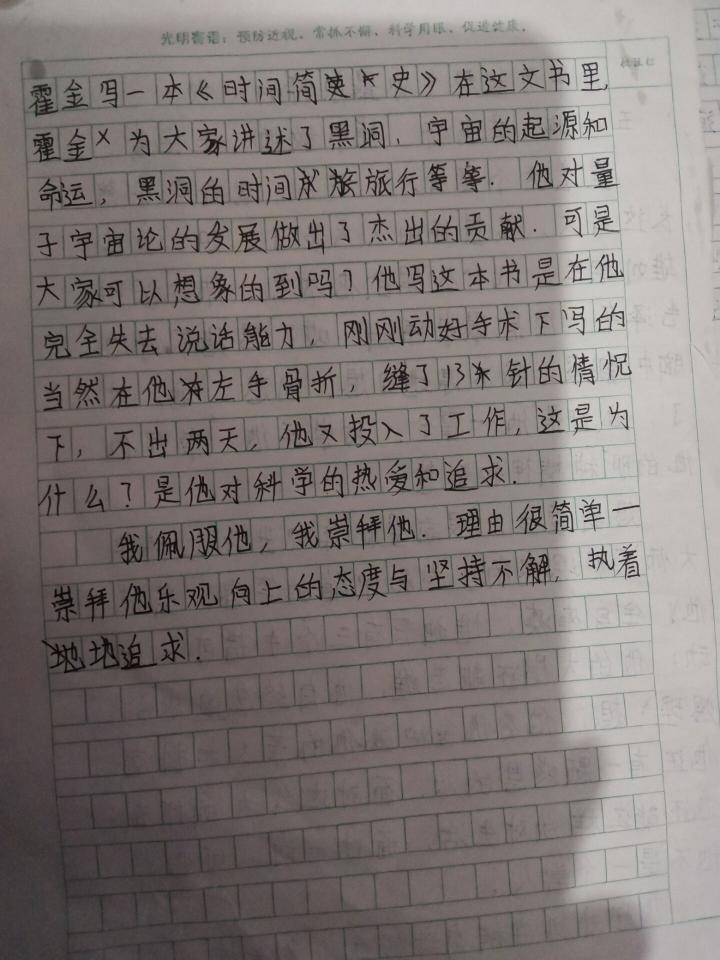 光明寄语：预防近视、常抓不懈、科学用眼、促进健康。
霍金写一本《时间简史》在这文书里,
霍金为大家讲述了黑洞.宇宙的起源和
命运,黑洞的时间旅行等等.他对量
子宇宙论的发展做出了杰出的贡献.可是
大家可以想象的到吗?他写这本书是在他
完全失去说话能力,刚刚动好手术下写的
当然在他左手骨折,缝了13针的情况
下,不出两天,他又投入了工作,这是为
什么?是他对科学的热爱和追求.
我佩服他,我崇拜他.理由很简单一
崇拜他乐观向上的态度与坚持不解,执着
地追求.